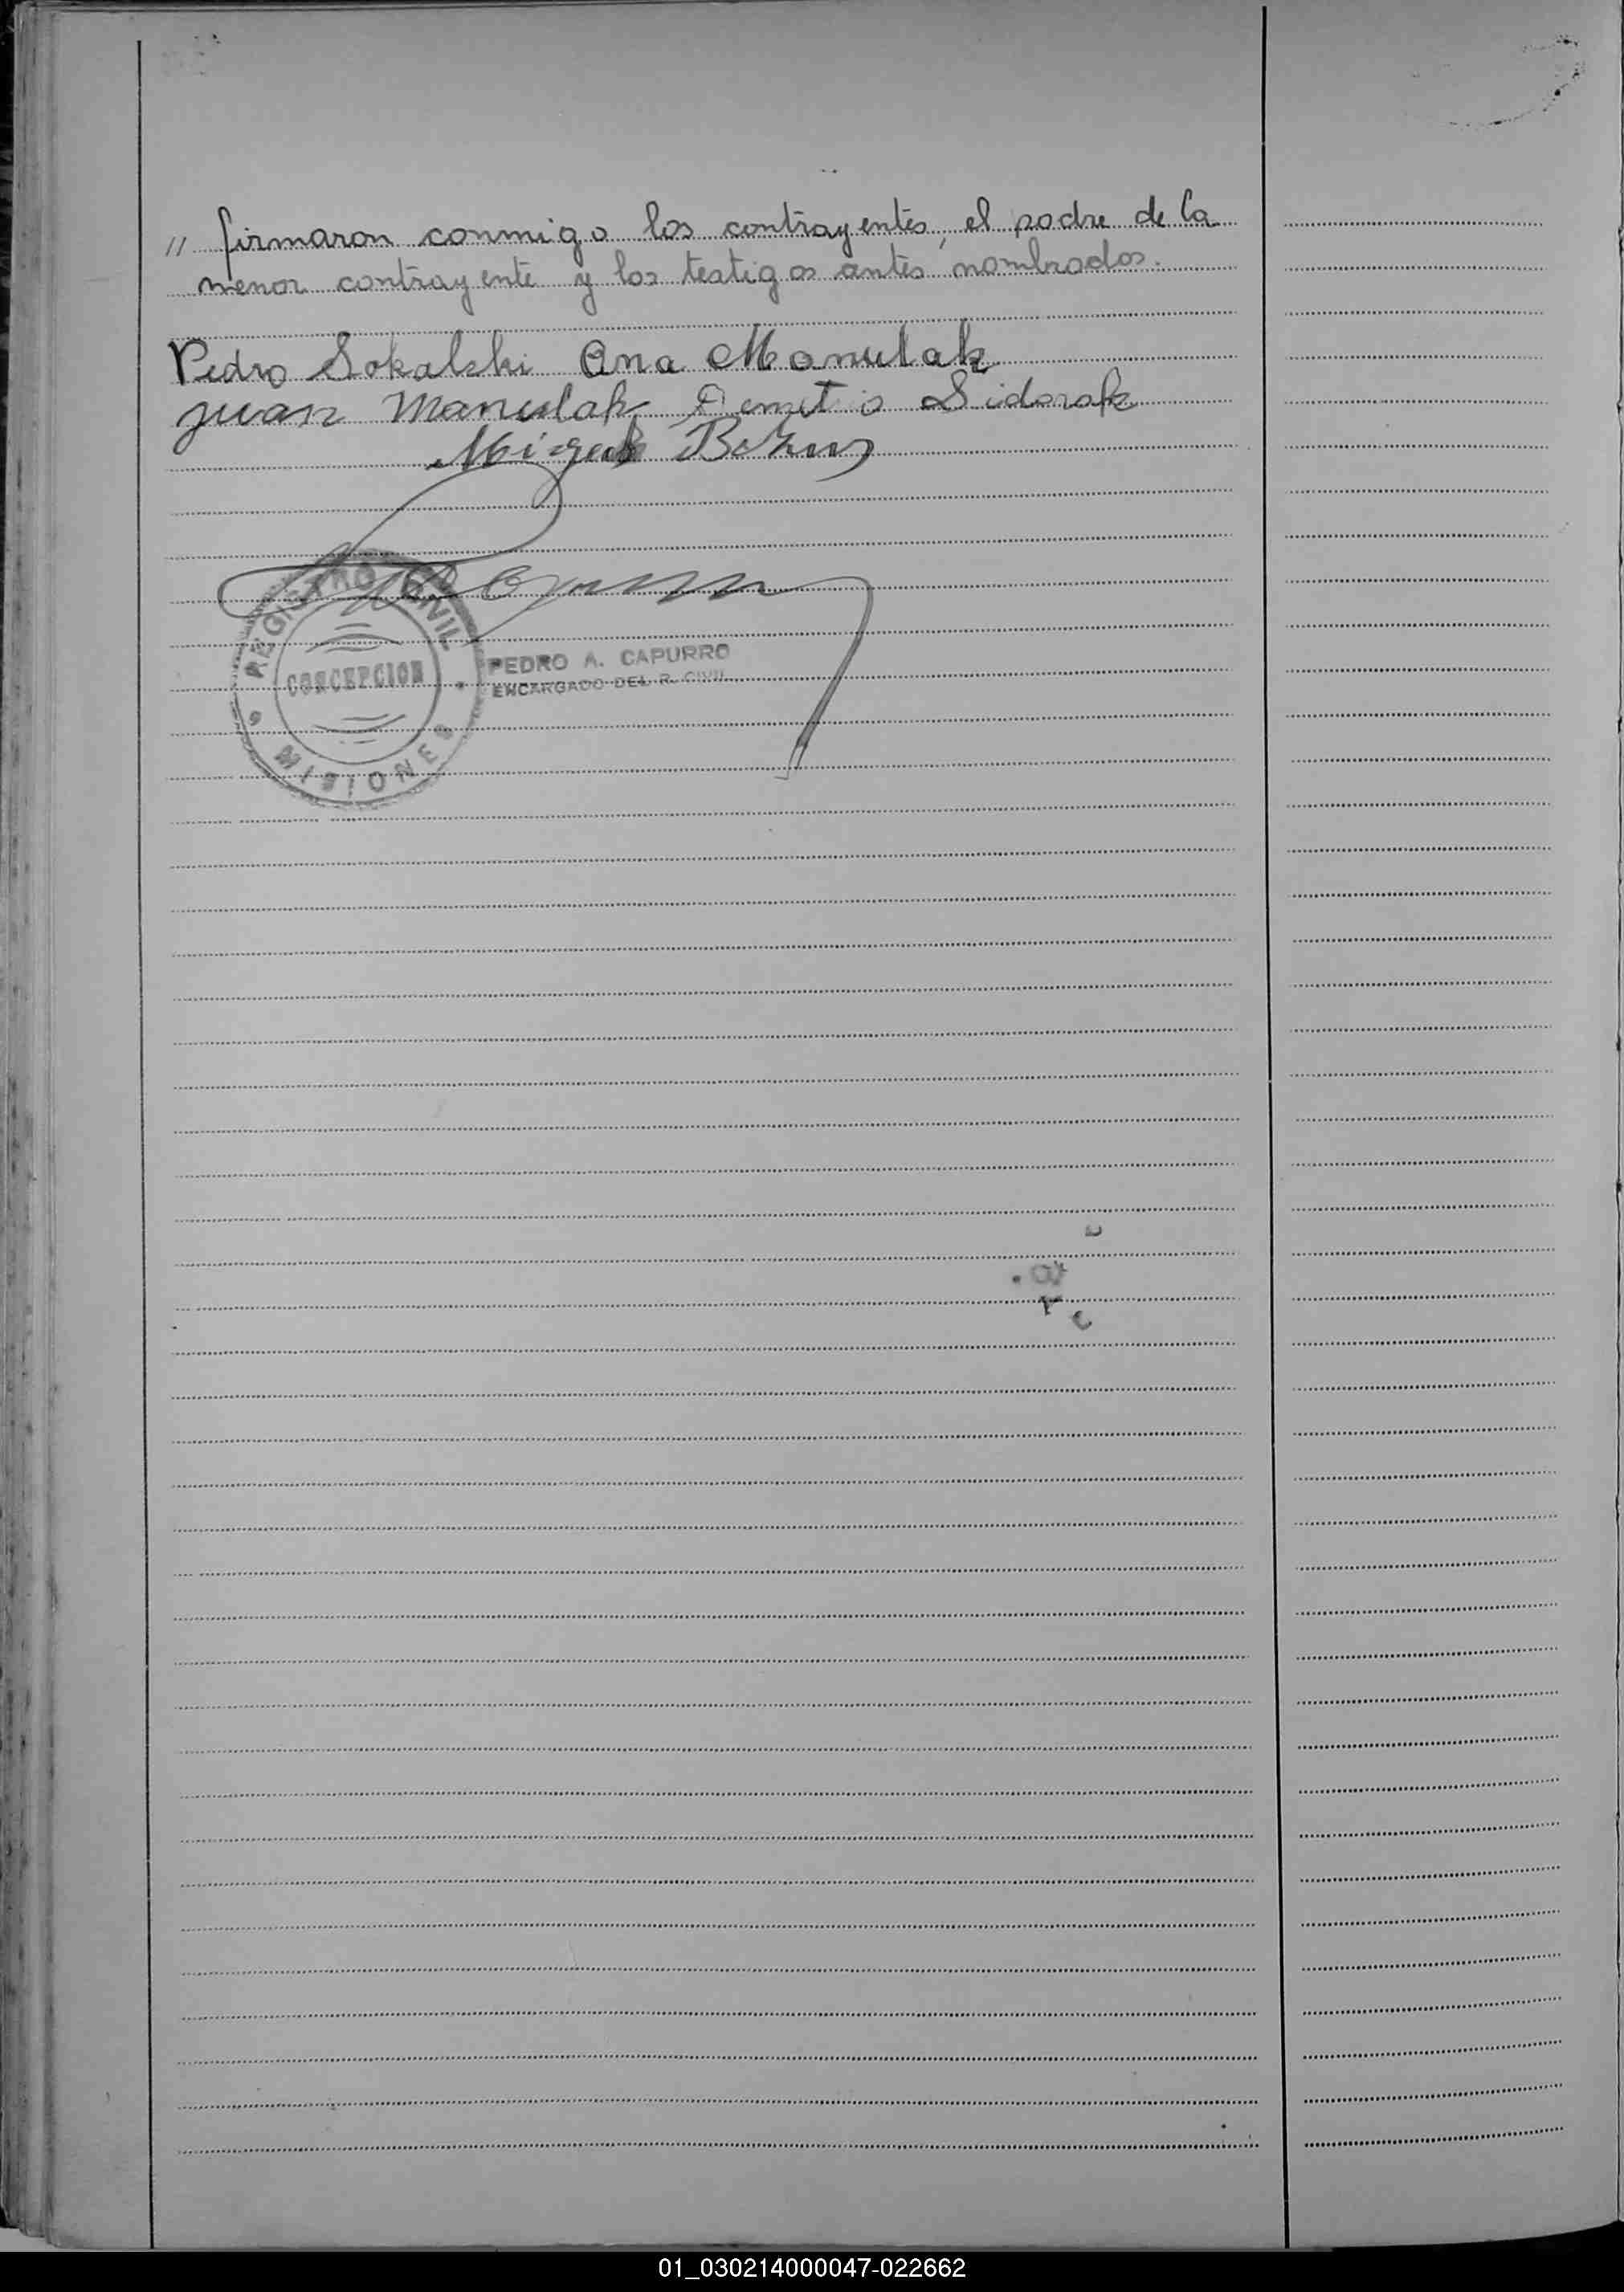 " firmaron conmigo los contrayentes, el padre de la
menor contrayente y los testigos antes nombrados.
Pedro Sokalski Ana Manulak
Juan Manulak Demetrio Sidorak
Miguel
REGISTRO CIVIL
CONCEPCION
MISIONES
PEDRO A. CAPURRO
ENCARGADO DEL R. CIVIL
01_030214000047-022662